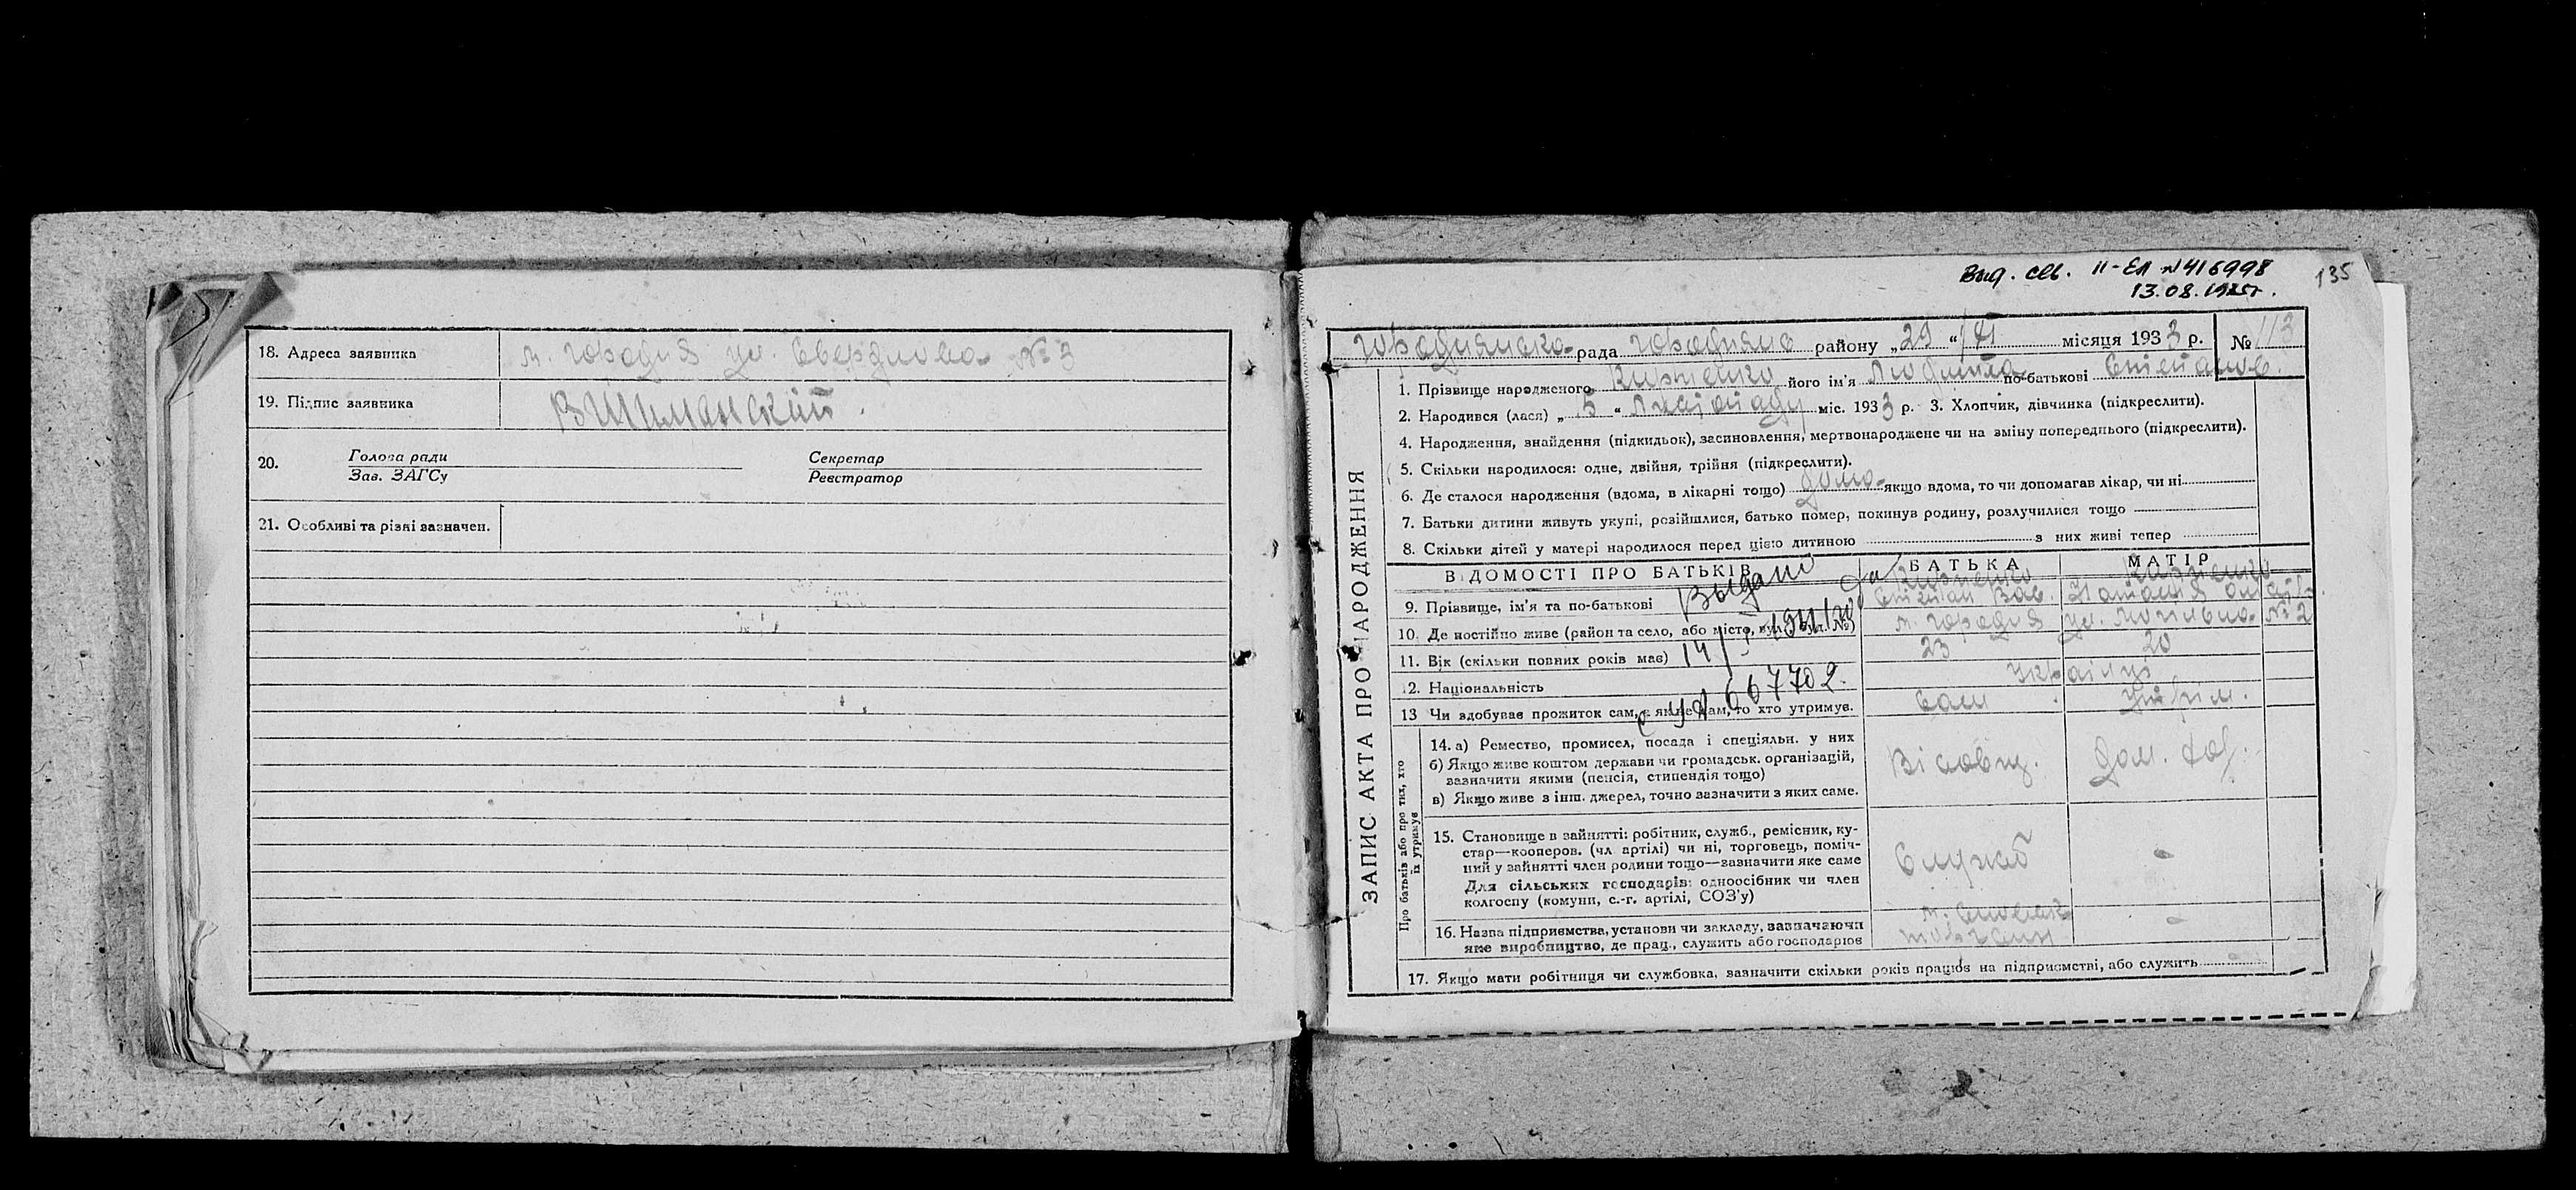 18. Адреса заявника м. Городня ул. Свердлова № 3
19. Підпис заявника ВШиманский.
20. Голова ради Секретар
Зав. ЗАГСу Реєстратор
21. Особливі та різні зазначен.
Вид. св. II-ЕЛ №416998
13.08.
135
рада району „29“ місяця 1933 р. № 113
1. Прізвище народженого його ім'я Людмила по-батькові
2. Народився (лася) „5“ Листопаду міс. 1933 р. 3. Хлопчик, дівчинка (підкреслити).
4. Народження, знайдення (підкидьок), засиновлення, мертвонароджене чи на зміну попереднього (підкреслити).
5. Скільки народилося: одне, двійня, трійня (підкреслити).
6. Де сталося народження (вдома, в лікарні тощо) дома якщо вдома, то чи допомагав лікар, чи ні
7. Батьки дитини живуть укупі, розійшлися, батько помер, покинув родину, розлучилися тощо
8. Скільки дітей у матері народилося перед цією дитиною з них живі тепер
ЗАПИС АКТА ПРО НАРОДЖЕННЯ
ВІДОМОСТІ ПРО БАТЬКІВ БАТЬКА МАТІР
Выдано
9. Прізвище, ім'я та по-батькові
10. Де постійно живе (район та село, або місто, вул. №) м. Городня ул. № 2
11. Вік (скільки повних років має) 23 20
12. Національність Українці
667702.
13 Чи здобуває прожиток сам, а як не сам, то хто утримує. Сам Утрим.
Про батьків або про тих, хто їх утримує
14. а) Ремество, промисел, посада і спеціяльн. у них
б) Якщо живе коштом держави чи громадськ. організацій,
зазначити якими (пенсія, стипендія тощо)
в) Якщо живе з інш. джерел, точно зазначити з яких саме.
Дом.
15. Становище в зайнятті: робітник, служб., ремісник, ку-
стар—кооперов. (чл. артілі) чи ні, торговець, поміч-
ний у зайнятті член родини тощо—зазначити яке саме
Для сільських господарів: одноосібник чи член
колгоспу (комуни, с.-г. артілі, СОЗ'у)
Служб -
16. Назва підприємства, установи чи закладу, зазначаючи
яке виробництво, де прац., служить або господарює
17. Якщо мати робітниця чи службовка, зазначити скільки років працює на підприємстві, або служить